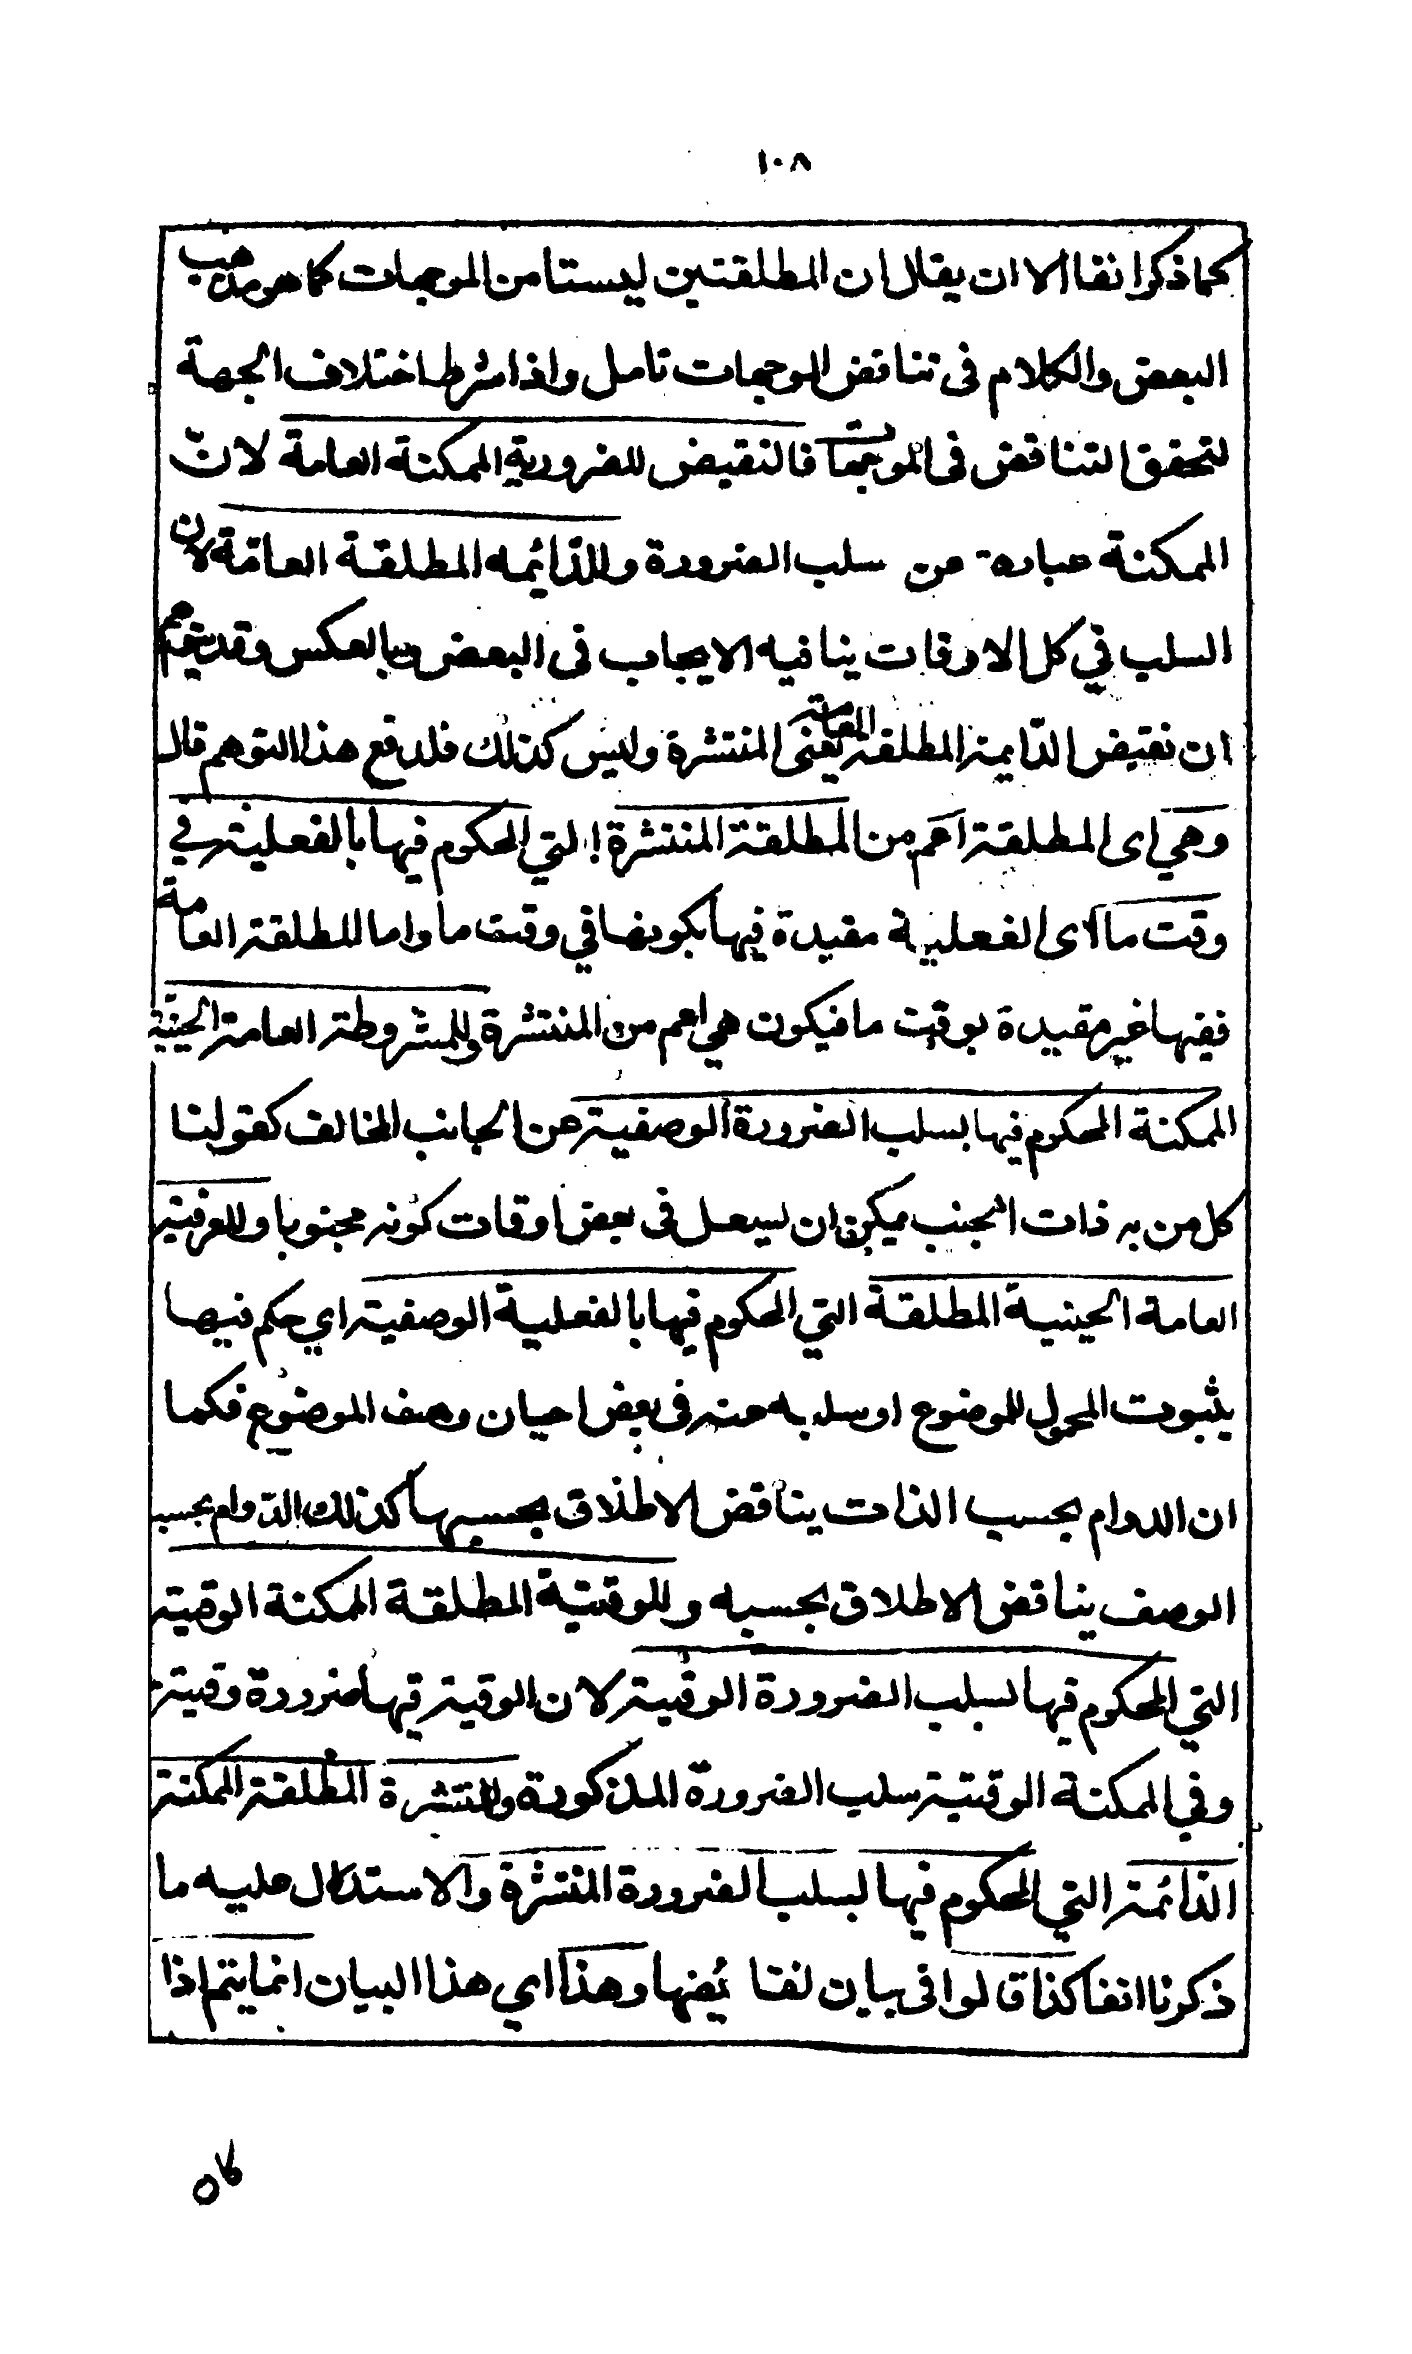 ١٠٨
كما ذكر انفا الا ان يقال ان المطلقتين ليستا من الموجهات كما هو مذهب
البعض والكلام فى تناقض الموجهات تامل واذا شرط اختلاف الجهة
لتحقق التناقض فى الموجهات فالنقيض للضرورية الممكنة العامة لانّ
الممكنة عبارة عن سلب الضرورة وللدّائمه المطلقة العامّة لان
السلب في كل الاوقات ينافيه الايجاب فى البعض وبالعكس وقد يتوهم
ان نقيض الدّايمة المطلقة العامة يعنى المنتشرة وليس كذلك فلدفع هذا التوهم قال
وهي اى المطلقة اعم من المطلقة المنتشرة التي المحكوم فيها بالفعلية في
وقت ما لاى الفعلية مقيدة فيها بكونها في وقت ما واما المطلقة العامة
ففيها غير مقيدة بوقت ما فيكون هي اعم من المنتشرة وللمشروطة العامة الحينية
الممكنة المحكوم فيها بسلب الضرورة الوصفية عن الجانب المخالف كقولنا
كل من به ذات الجنب يمكن ان يسعل فى بعض اوقات كونه مجنوبا وللعرفية
العامة الحينية المطلقة التي المحكوم فيها بالفعلية الوصفية اي حكم فيها
بثبوت المحمول للموضوع او سلبه عنه فى بعض احيان وصف الموضوع فكما
ان الدوام بحسب الذات يناقض الاطلاق بحسبها كذلك الدّوام بحسب
الوصف يناقض الاطلاق بحسبه وللوقتية المطلقة الممكنة الوقتية
التي المحكوم فيها لسلب الضرورة الوقتية لان الوقتية فيها ضرورة وقتية
وفي الممكنة الوقتية سلب الضرورة المذكورة وللمنتشرة المطلقة الممكنة
الدّائمة التي المحكوم فيها لسلب الضرورة المنتشرة والاستدلال عليه ما
ذكرنا انفا كذا قالوا فى بيان نقائضها وهذا اي هذا البيان انما يتم اذا